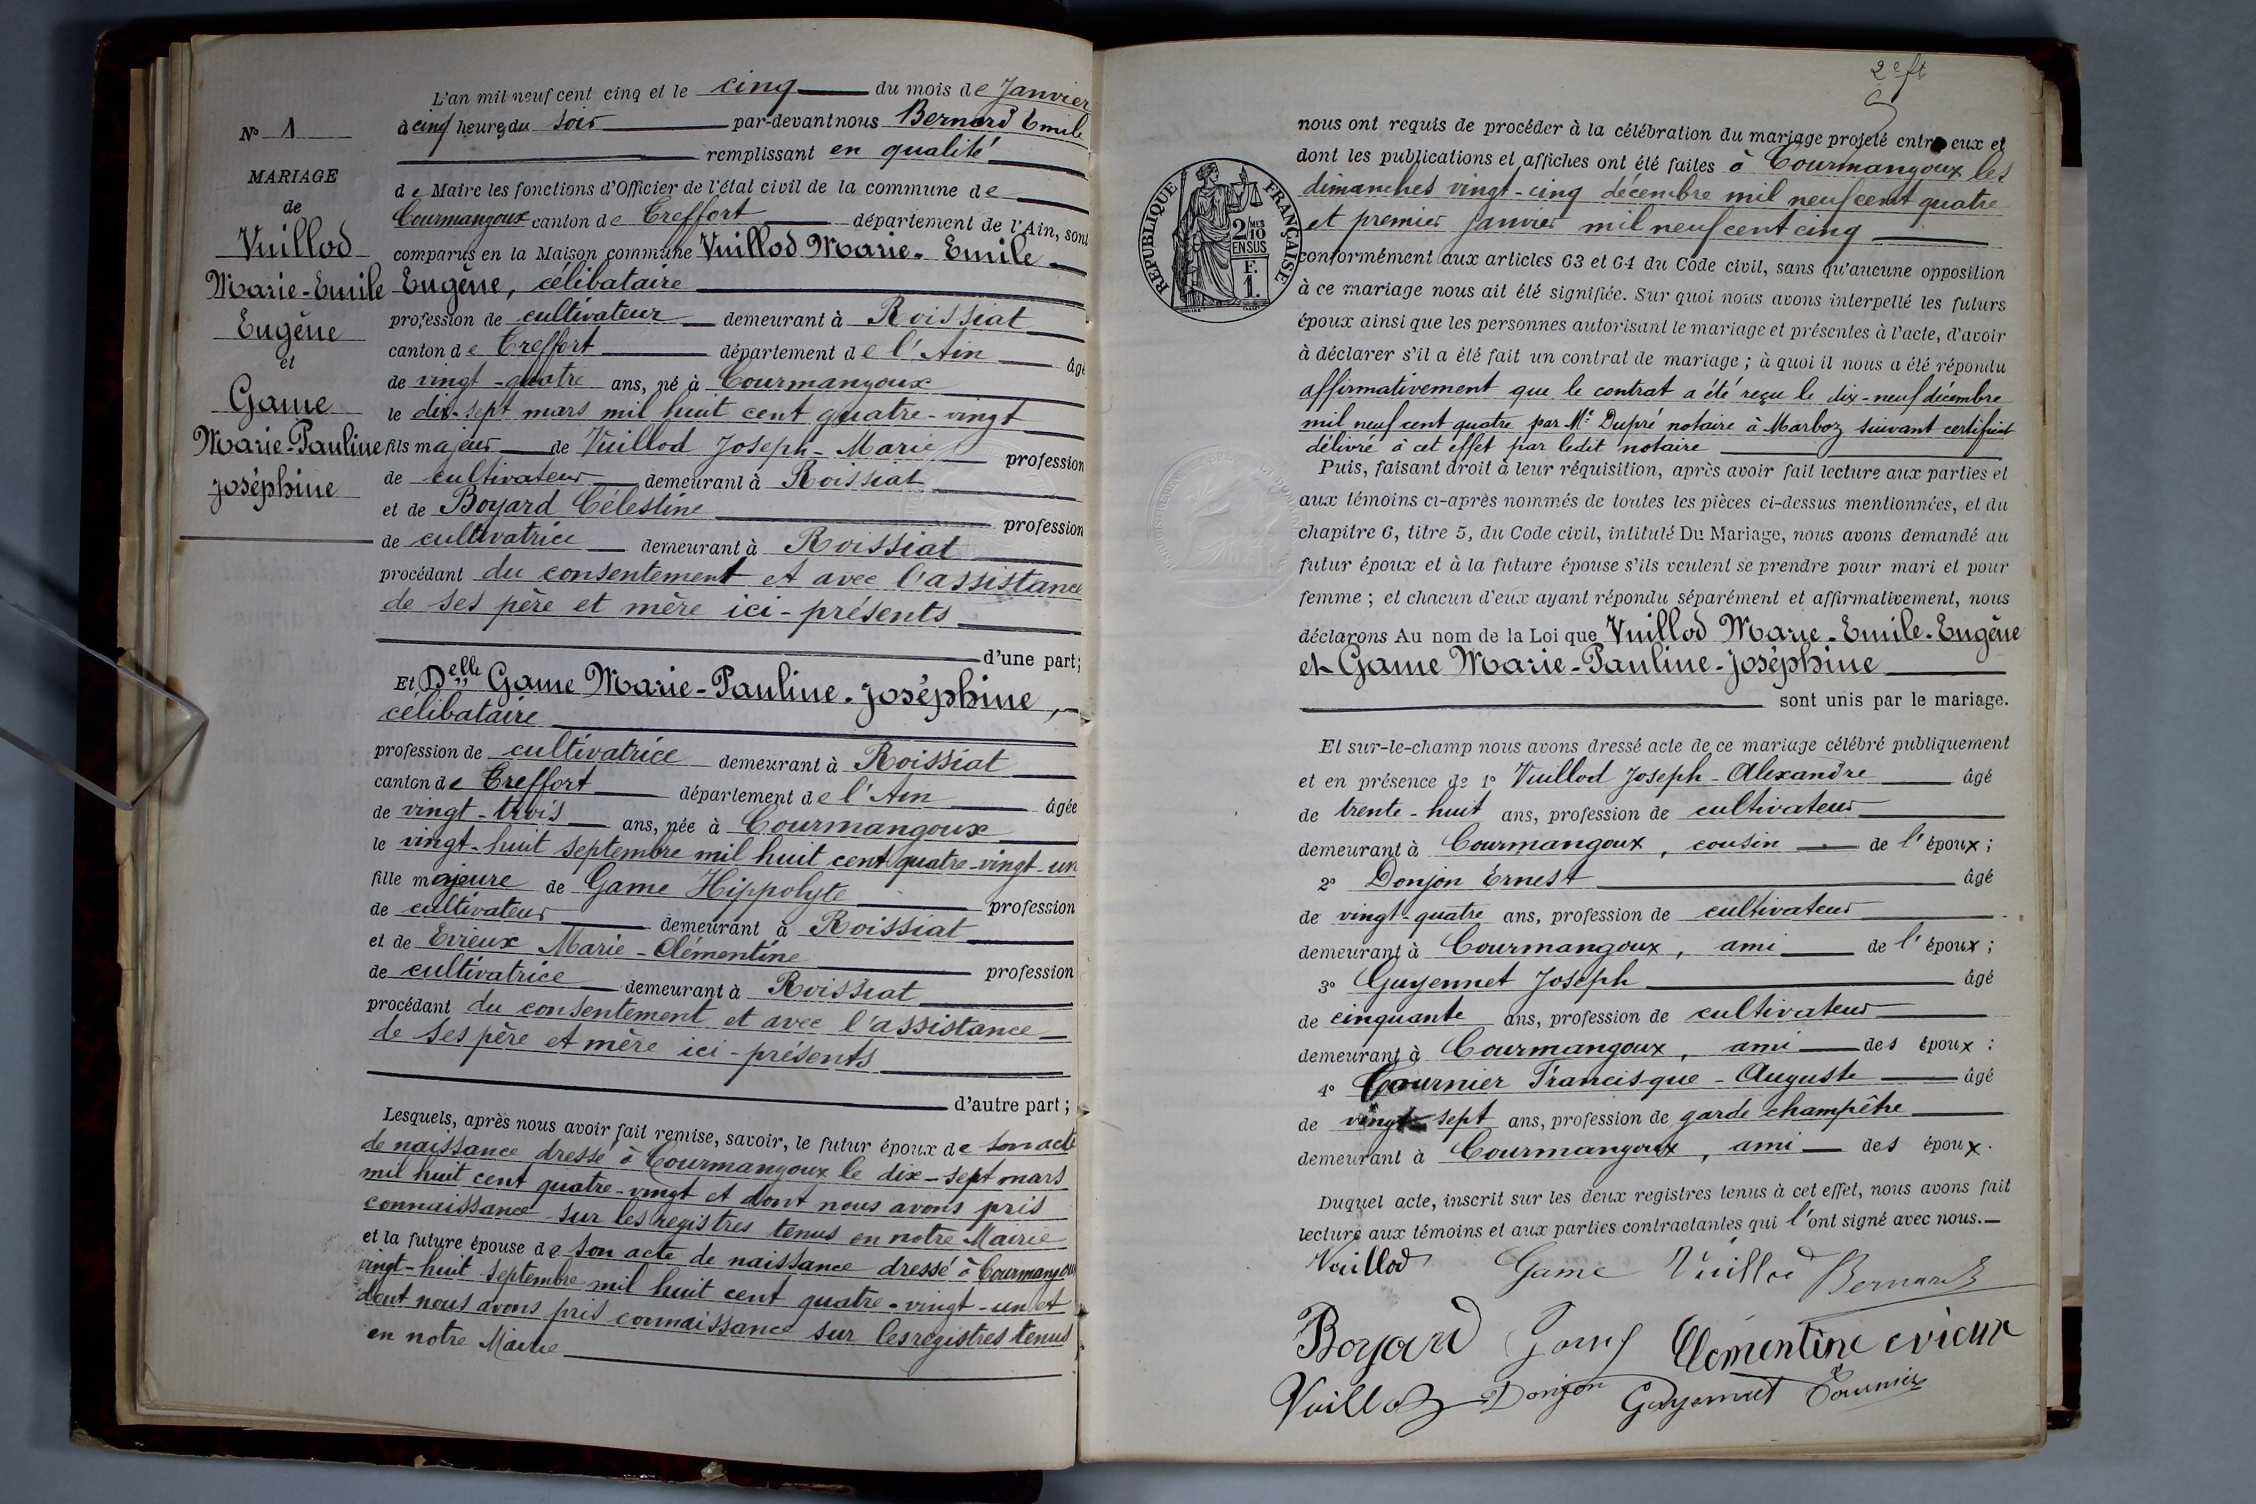 N° 1
MARIAGE
de
Vuillod
Marie-Emile
Eugène
et
Game
Marie-Pauline
Joséphine
L'an mil neuf cent cinq et le cinq du mois de Janvier
à cinq heures du soir par-devant nous Bernard Emile
remplissant en qualité
de Maire les fonctions d'Officier de l'état civil de la commune de
Courmangoux canton de Treffort département de l'Ain, sont
comparus en la Maison commune Vuillod Marie-Emile
Eugène, célibataire
profession de cultivateur demeurant à Roissiat
canton de Treffort département de l'Ain âgé
de vingt-quatre ans, né à Courmangoux
le dix-sept mars mil huit cent quatre-vingt
fils majeur de Vuillod Joseph-Marie profession
de cultivateur demeurant à Roissiat
et de Boyard Célestine profession
de cultivatrice demeurant à Roissiat
procédant du consentement et avec l'assistance
de ses père et mère ici-présents
d'une part;
Et Delle Game Marie-Pauline-Joséphine,
célibataire
profession de cultivatrice demeurant à Roissiat
canton de Treffort département de l'Ain âgée
de vingt-trois ans, née à Courmangoux
le vingt-huit septembre mil huit cent quatre-vingt-un
fille majeure de Game Hippolyte profession
de cultivateur demeurant à Roissiat
et de Evieux Marie-Clémentine profession
de cultivatrice demeurant à Roissiat
procédant du consentement et avec l'assistance
de ses père et mère ici-présents
d'autre part;
Lesquels, après nous avoir fait remise, savoir, le futur époux de son acte
de naissance dressé à Courmangoux le dix-sept mars
mil huit cent quatre-vingt et dont nous avons pris
connaissance sur les registres tenus en notre Mairie
et la future épouse de son acte de naissance dressé à Courmangoux
vingt-huit septembre mil huit cent quatre-vingt-un et
dont nous avons pris connaissance sur les registres tenus
en notre Mairie
2e ft
RÉPUBLIQUE FRANÇAISE
2/10
EN SUS
F.
1.
nous ont requis de procéder à la célébration du mariage projeté entre eux et
dont les publications et affiches ont été faites à Courmangoux les
dimanches vingt-cinq décembre mil neuf cent quatre
et premier janvier mil neuf cent cinq
conformément aux articles 63 et 64 du Code civil, sans qu'aucune opposition
à ce mariage nous ait été signifiée. Sur quoi nous avons interpellé les futurs
époux ainsi que les personnes autorisant le mariage et présentes à l'acte, d'avoir
à déclarer s'il a été fait un contrat de mariage; à quoi il nous a été répondu
affirmativement que le contrat a été reçu le dix-neuf décembre
mil neuf cent quatre par Me Dupré notaire à Marboz suivant certificat
délivré à cet effet par ledit notaire
Puis, faisant droit à leur réquisition, après avoir fait lecture aux parties et
aux témoins ci-après nommés de toutes les pièces ci-dessus mentionnées, et du
chapitre 6, titre 5, du Code civil, intitulé Du Mariage, nous avons demandé au
futur époux et à la future épouse s'ils veulent se prendre pour mari et pour
femme; et chacun d'eux ayant répondu séparément et affirmativement, nous
déclarons Au nom de la Loi que Vuillod Marie-Emile-Eugène
et Game Marie-Pauline-Joséphine
sont unis par le mariage.
Et sur-le-champ nous avons dressé acte de ce mariage célébré publiquement
et en présence de 1° Vuillod Joseph-Alexandre âgé
de trente-huit ans, profession de cultivateur
demeurant à Courmangoux, cousin de l'époux;
2° Donjon Ernest âgé
de vingt-quatre ans, profession de cultivateur
demeurant à Courmangoux, ami de l'époux;
3° Guyennet Joseph âgé
de cinquante ans, profession de cultivateur
demeurant à Courmangoux, ami des époux;
4° Tournier Francisque-Auguste âgé
de vingt-sept ans, profession de garde champêtre
demeurant à Courmangoux, ami des époux.
Duquel acte, inscrit sur les deux registres tenus à cet effet, nous avons fait
lecture aux témoins et aux parties contractantes qui l'ont signé avec nous.
Vuillod Game Vuillod Bernard
Boyard Clémentine evieux
Vuillod Donjon Guyennet Tournier